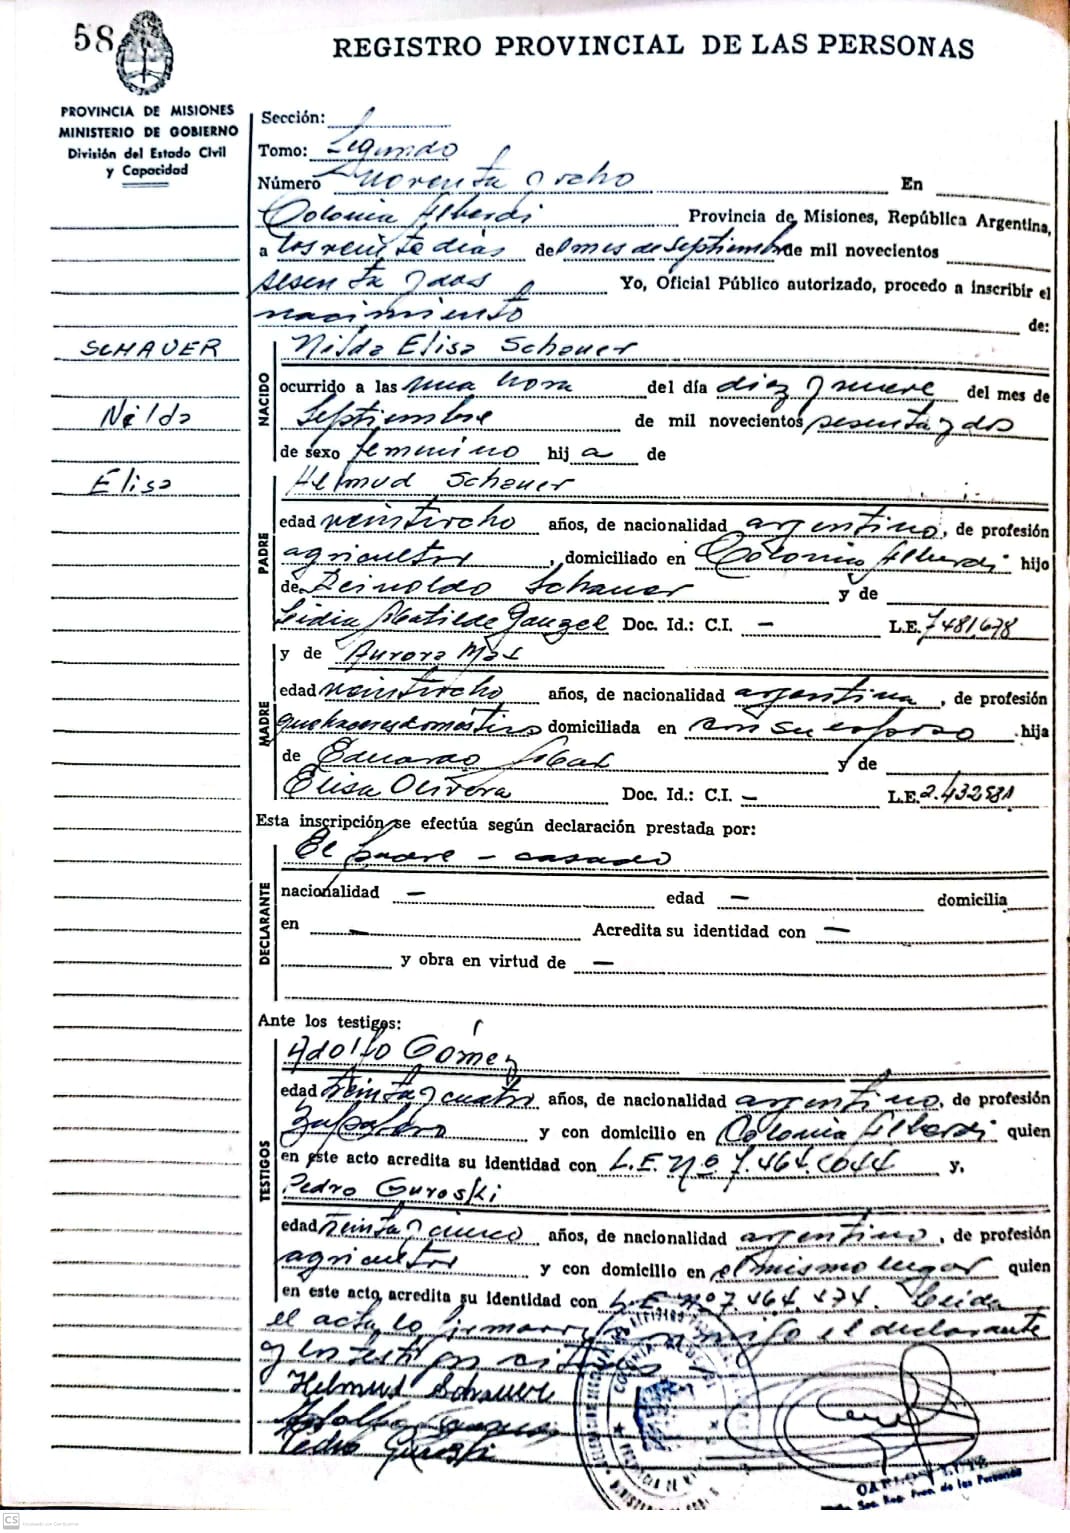 58
REGISTRO PROVINCIAL DE LAS PERSONAS
PROVINCIA DE MISIONES
MINISTERIO DE GOBIERNO
División del Estado Civil
y Capacidad
Sección:
Tomo: Segundo
Número noventa y ocho En
Colonia Alberdi Provincia de Misiones, República Argentina,
a los veinte días del mes de septiembre de mil novecientos
sesenta y dos Yo, Oficial Público autorizado, procedo a inscribir el
nacimiento de:
SCHAUER
Nilda
Elisa
NACIDO
Nilda Elisa Schauer
ocurrido a las una hora del día diez y nueve del mes de
Septiembre de mil novecientos sesenta y dos
de sexo femenino hij a de
PADRE
Helmud Schauer
edad veintiocho años, de nacionalidad argentino, de profesión
agricultor, domiciliado en Colonia Alberdi hijo
de Reinoldo Schauer y de
Lidia Matilde Doc. Id.: C.I. — L.E. 7481,678
MADRE
y de Aurora
edad veintiocho años, de nacionalidad argentina, de profesión
quehaceres domésticos domiciliada en con su esposo hija
de Eduardo y de
Elisa Olivera Doc. Id.: C.I. — L.E. 2.432581
Esta inscripción se efectúa según declaración prestada por:
DECLARANTE
El padre — casado
nacionalidad — edad — domicilia
en — Acredita su identidad con —
y obra en virtud de —
Ante los testigos:
TESTIGOS
Adolfo Gómez
edad treinta y cuatro años, de nacionalidad argentino, de profesión
Zapatero y con domicilio en Colonia Alberdi quien
en este acto acredita su identidad con L.E. Nº 7.464.044 y,
Pedro Guroski
edad treinta y cinco años, de nacionalidad argentino, de profesión
agricultor y con domicilio en el mismo lugar quien
en este acto acredita su identidad con L.E. Nº 7.464.474. Leida
el acta lo firman conmigo el declarante
y los testigos citados
Helmud Schauer
Adolfo Gomez
Pedro Guroski
Sec. Reg. Prov. de las Personas
CS